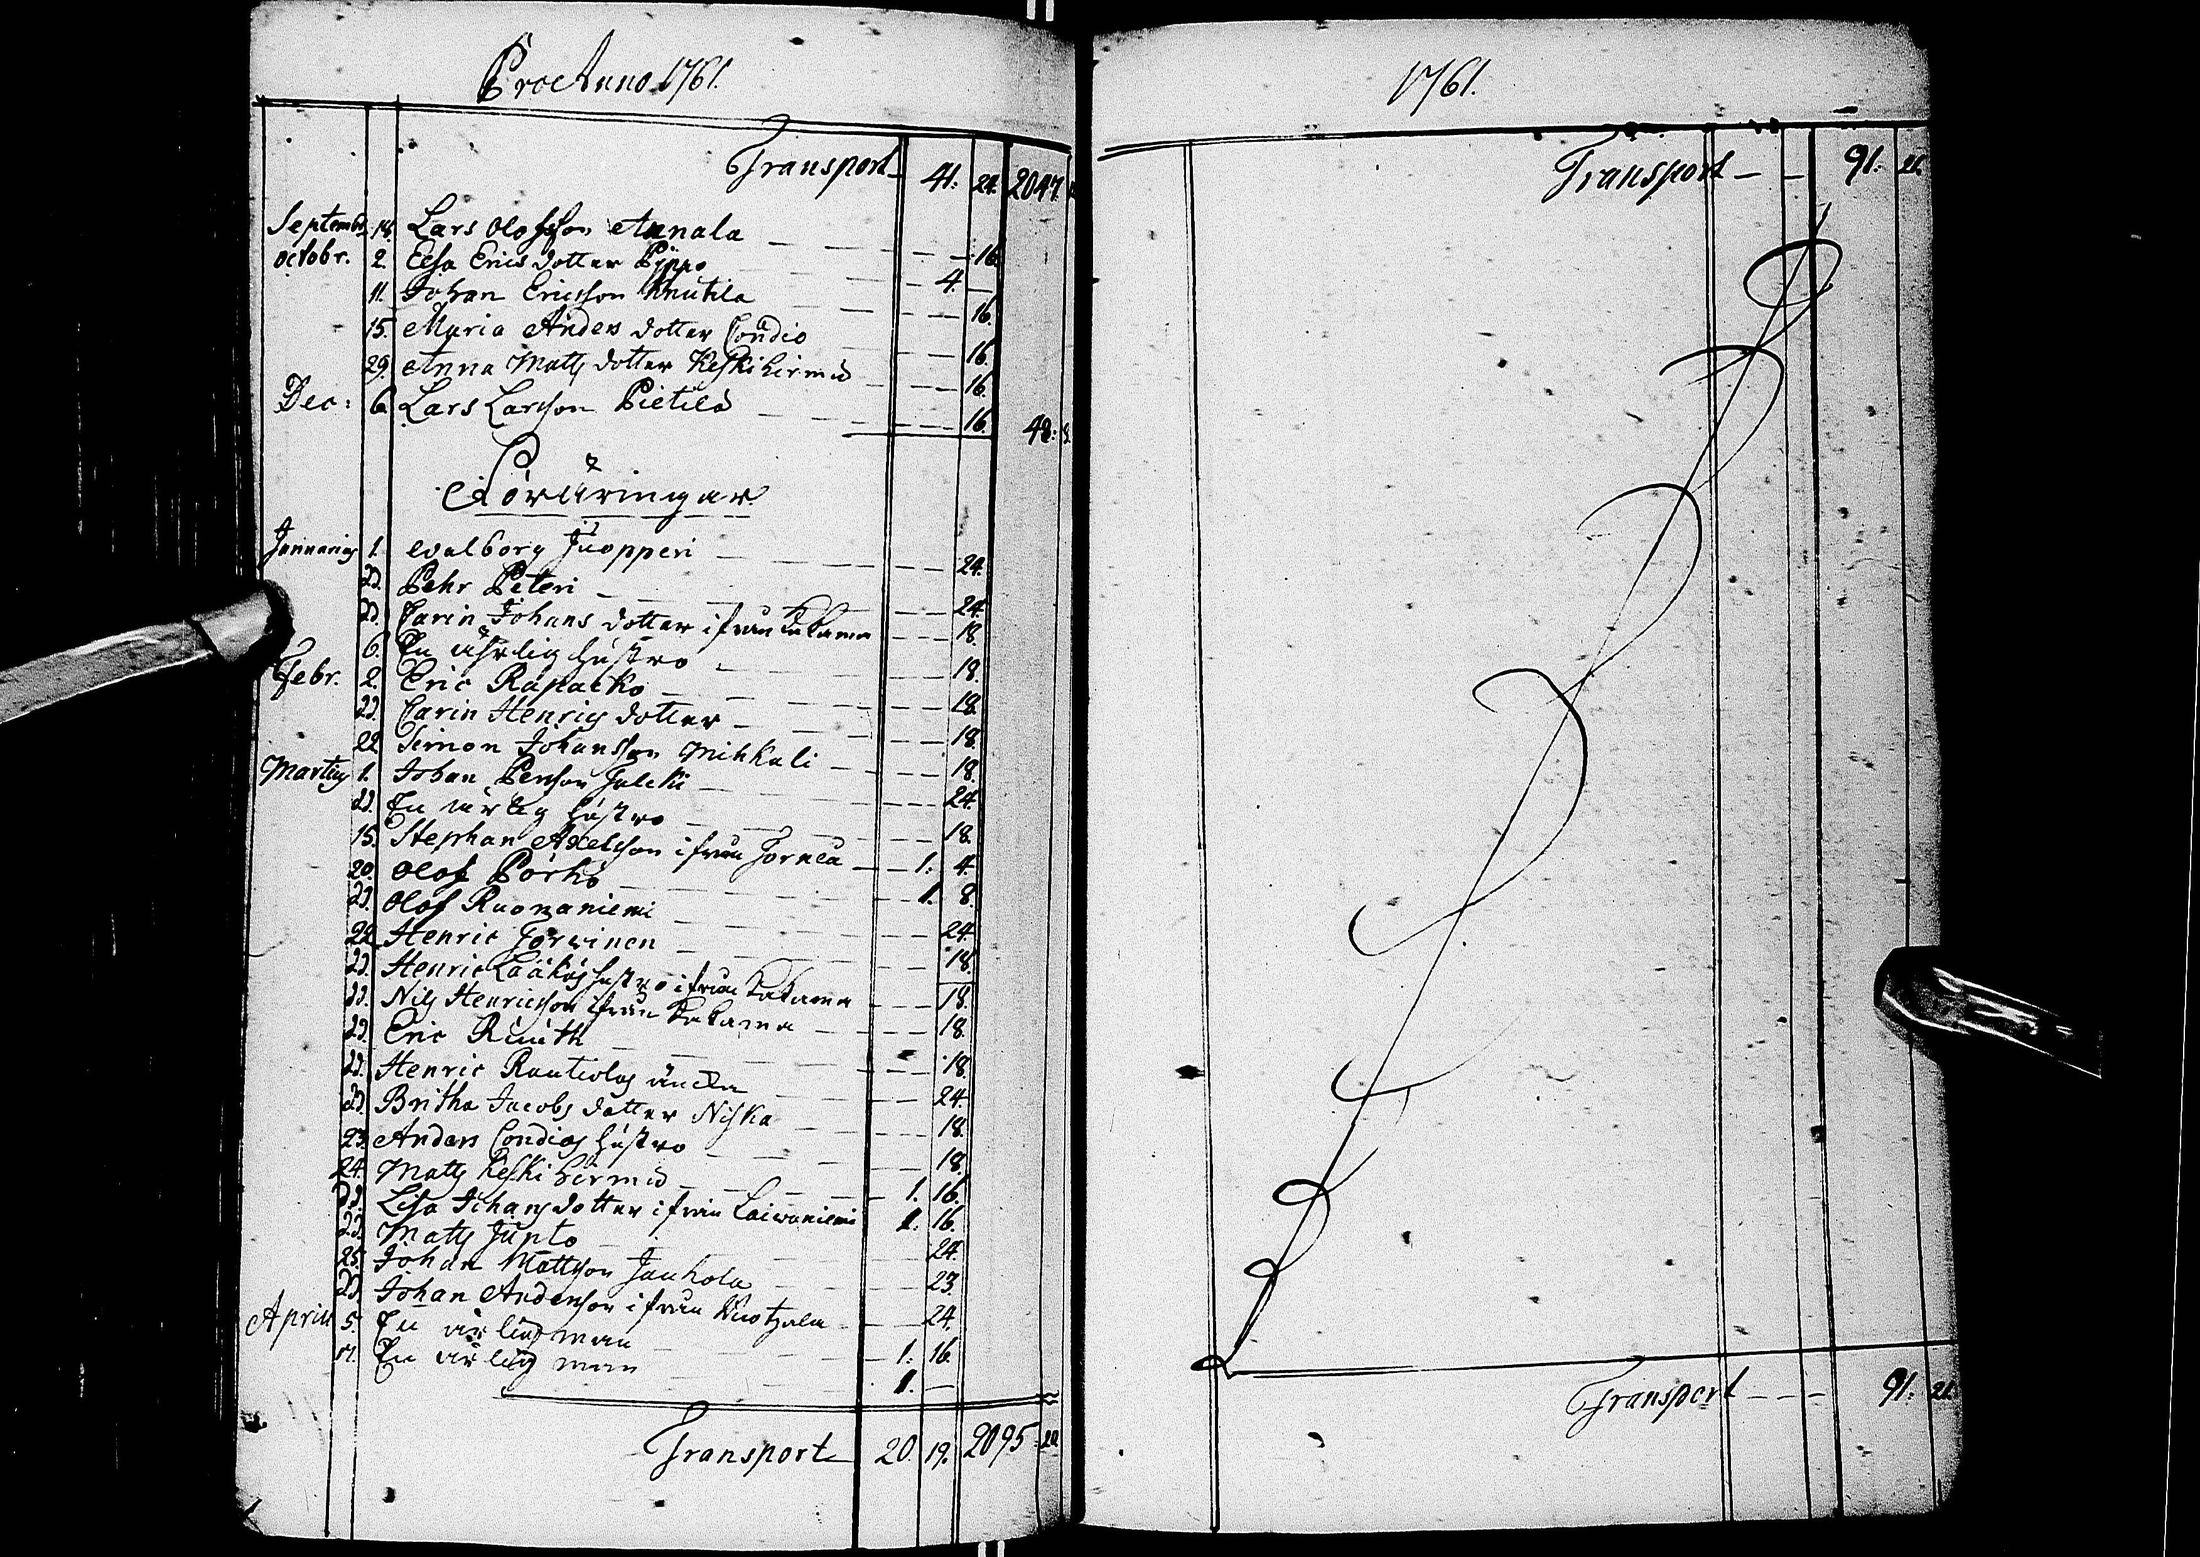 Pro Anno 1761.
Transport 41. 24. 2047.
Septembr. 18. Lars Olofsson Annala 16.
Octobr. 2. Elsa Erics dotter Pijppo 4. —
11. Johan Ericsson Knutila 16.
15. Maria Anders dotter Condio 16.
29. Anna Matts dotter Keski hirmu 16.
Dec: 6. Lars Larsson Pietilä 16. 48:
Föräringar
Januarius 1. Walborg Juopperi 24.
D. Pehr Peteri 24.
D. Carin Johans dotter ifrån Kakama 18.
6. En ährlig hustro 18.
Febr. 2. Eric Rapacko 18.
D. Carin Henrics dotter 18.
22. Simon Johansson Mihkali 18.
Martius 1. Johan Persson 24.
D. En ärlig hustro 18.
15. Stephan Axelsson ifrån Torneå 1. 4.
20. Olof Pörhö 1. 8.
D. Olof Ruonaniemi 24.
22. Henric Jörvinen 18.
D. Henric Lääkös hustro ifrån Kakama 18.
D. Nils Henricsson ifrån Kakama 18.
D. Eric 18.
D. Henric Rautiolas äncka 24.
D. Britha Jacobs dotter Niska 18.
23. Anders Condios hustro 18.
24. Matts Keski hirmu 1. 16.
D. Lisa Johans dotter ifrån Laiwaniemi 1. 16.
D. Matts Junto 24.
25. Johan Mattsson Jauhola 23.
D. Johan Andersson ifrån 24.
Aprill 5. En ärlig man 1. 16.
En ärlig man 1. —
Transport 20. 19. 2095
1761.
Transport 91. 21.
Transport 91. 21.